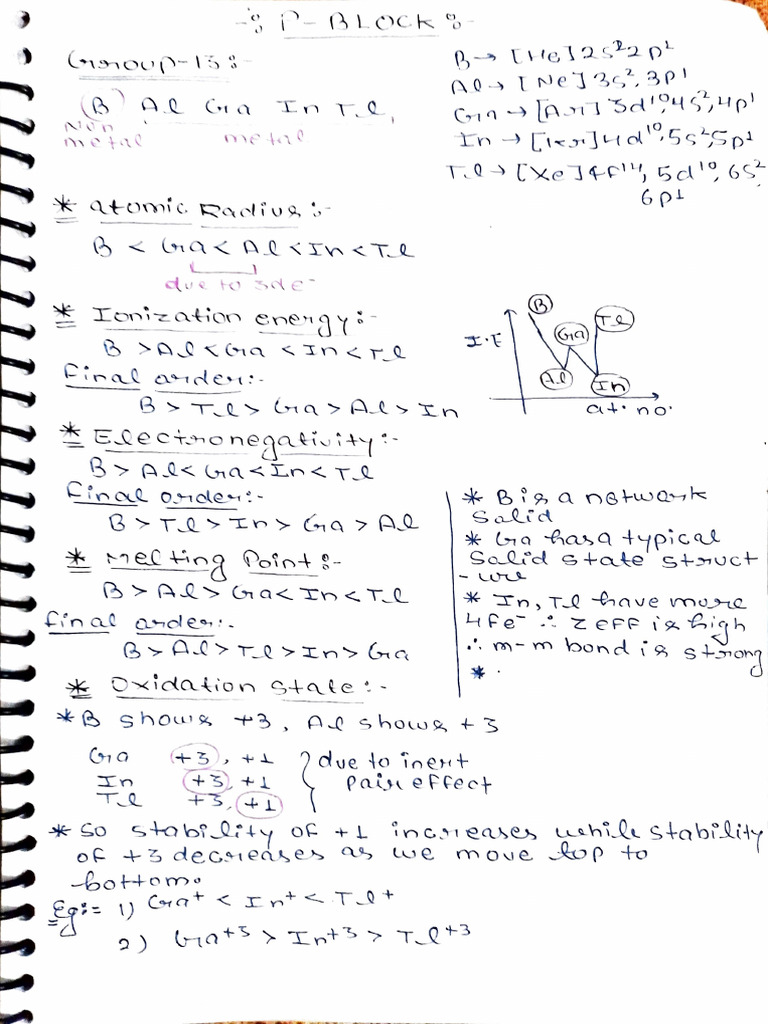 -:: P-BLOCK :-
Group-13:-
B Al Ga In Tl,
Non metal metal
B → [He] 2s² 2p¹
Al → [Ne] 3s², 3p¹
Ga → [Ar] 3d¹⁰, 4s², 4p¹
In → [Kr] 4d¹⁰, 5s², 5p¹
Tl → [Xe] 4f¹⁴, 5d¹⁰, 6s²,
6p¹
* Atomic Radius:-
B < Ga < Al < In < Tl
due to 3d e⁻
* Ionization energy:-
B > Al < Ga < In < Tl
final order:-
B > Tl > Ga > Al > In
I.E
B
Ga
Tl
Al
In
at. no.
* Electronegativity:-
B > Al < Ga < In < Tl
final order:-
B > Tl > In > Ga > Al
* Melting Point:-
B > Al > Ga < In < Tl
final order:-
B > Al > Tl > In > Ga
* B is a network
solid
* Ga has a typical
solid state struct
-ure
* In, Tl have more
4f e⁻ ∴ Z eff is high
∴ m-m bond is strong
* .
* Oxidation State:-
* B shows +3, Al shows +3
Ga +3, +1
In +3, +1
Tl +3, +1
} due to inert
pair effect
* So stability of +1 increases while stability
of +3 decreases as we move top to
bottom.
Eg:= 1) Ga⁺ < In⁺ < Tl⁺
2) Ga⁺³ > In⁺³ > Tl⁺³